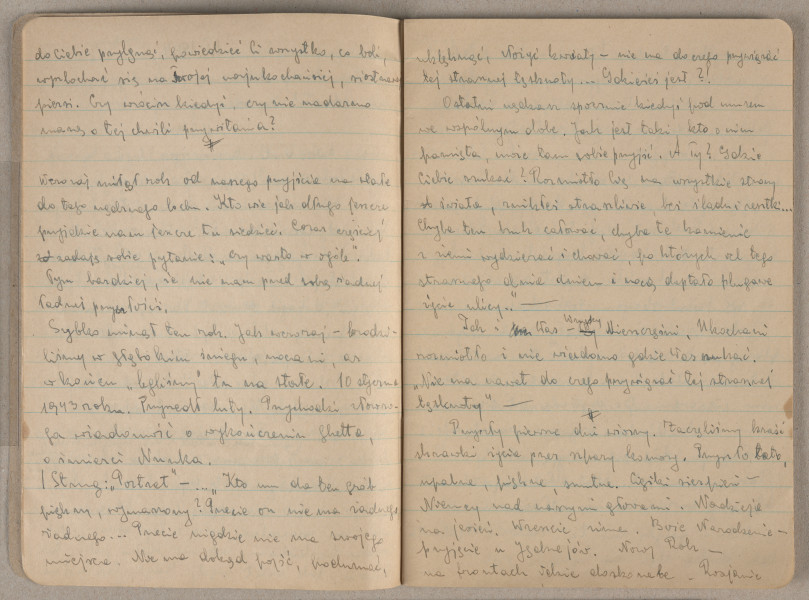 do Ciebie przylgnąć, powiedzieć Ci wszystko, co boli,
wypłochać się na Twojej najukochańszej, siostrzanej
piersi. Czy wrócisz kiedyś, czy nie nadaremno
marzę o tej chwili przywitania?
Wczoraj minął rok od naszego przyjścia na stałe
do tego nędznego lochu. Kto wie jak długo jeszcze
przyjdzie nam jeszcze tu siedzieć. Coraz częściej
zadaję sobie pytanie: "czy warto w ogóle".
Tym bardziej, że nie mam przed sobą żadnej
żadnej przyszłości.
Szybko minął ten rok. Jak wczoraj – brodzi-
liśmy w głębokim śniegu, nocami, aż
w końcu "legliśmy" tu na stałe. 10 stycznia
1943 roku. Przyszedł luty. Przychodzi
wiadomość o wykończeniu Ghetta,
o śmierci
/ Strug: "Portret" – ... "Kto mu da ten grób
piękny, wymarzony? Przecie on nie ma żadnego
żadnego... Przecie nigdzie nie ma swojego
miejsca. Nie ma dokąd pójść, podumać,
uklęknąć, złożyć kwiaty – nie ma do czego przywiązać
tej strasznej tęsknoty... Gdzieżeś jest?!
Ostatni nędzarz spocznie kiedyś pod murem
we wspólnym dole. Jak jest taki, kto o nim
pamięta, może tam sobie przyjść. A Ty? Gdzie
Ciebie szukać? Rozniosło Cię na wszystkie strony
świata, znikłeś straszliwie, bez śladu i resztki...
Chyba ten bruk całować, chyba te kamienie
z ziemi wydzierać i chować, po których od tego
strasznego dnia dniem i nocą deptało plugawe
życie ulicy." —
Tak i Was – Wszyscy Nieszczęśni, Ukochani
rozniosło i nie wiadomo gdzie Was szukać.
"Nie ma nawet do czego przywiązać tej strasznej
tęsknoty" —
Przyszły pierwsze dni wiosny. Zaczęliśmy kraść
skrawki życia przez szpary komory. Przyszło lato,
upalne, piękne, smutne. Ciężki sierpień –
Niemcy nad naszymi głowami. Nadzieja
na jesień. Wreszcie zima. Boże Narodzenie –
przyjście u Nowy Rok –
na frontach idzie doskonale. Rosjanie